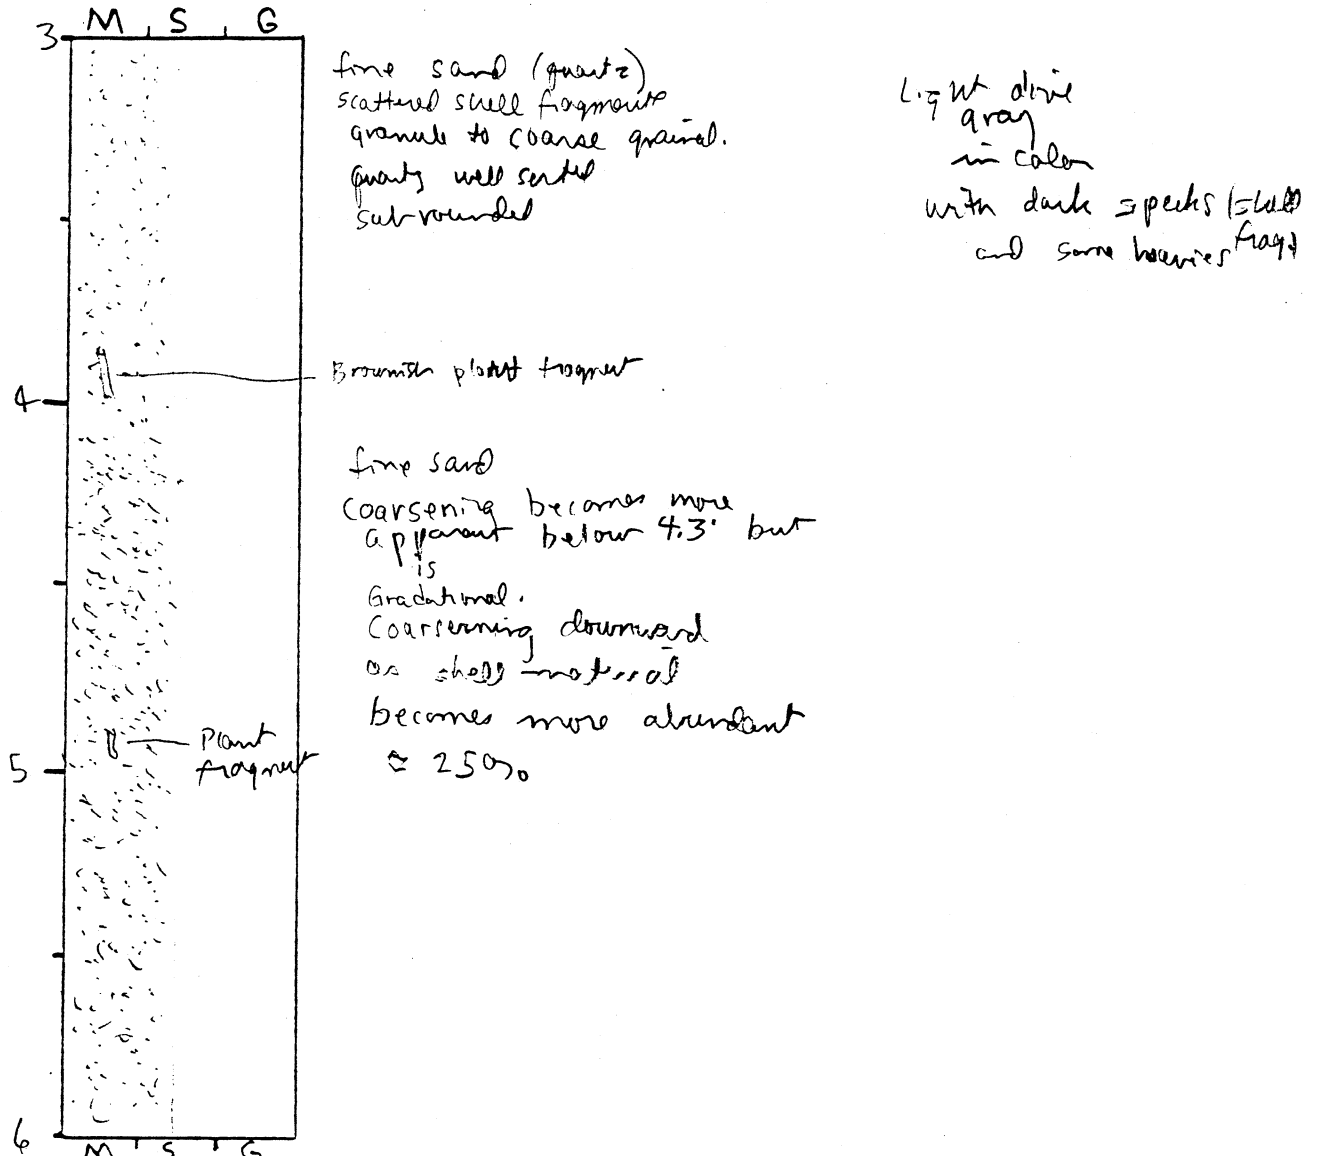 M S G
3
fine sand (quartz)
scattered shell fragments
granule to coarse grained.
quartz well sorted
subrounded
Light olive
gray
in color
with dark specks (shell
frags)
and some heavies
Brownish plant fragment
4
fine sand
Coarsening becomes more
apparent below 4.3' but
is
Gradational.
Coarserning downward
as shell material
becomes more abundant
≈ 25%
Plant
fragment
5
6
M S G